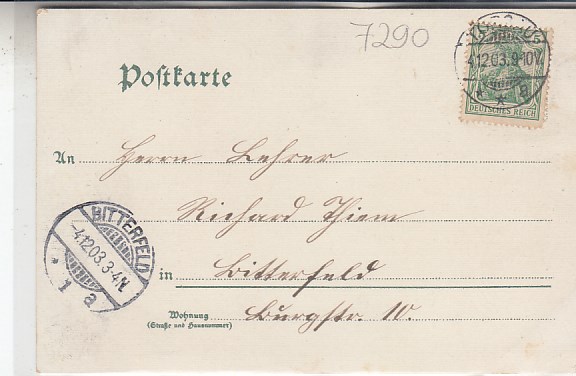 7290
4.12.03.9-10V.
* a
DEUTSCHES REICH
Postkarte
An Herrn Lehrer
Richard Thiem
BITTERFELD
-4.12.03.3-4N.
* 1 a
in Bitterfeld
Wohnung Burgstr. 10.
(Straße und Hausnummer)